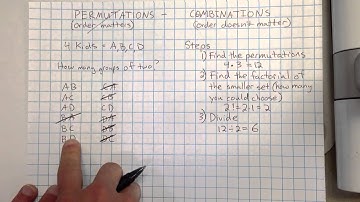 PERMUTATIONS - COMBINATIONS
(order matters) (order doesn't matter)
4 Kids = A, B, C, D
How many groups of two?
AB CA
AC CB
AD CD
BA DA
BC DB
BD DC
Steps
1) Find the permutations
4 · 3 = 12
2) Find the factorial of
the smaller set (how many
you could choose)
2! = 2·1 = 2
3) Divide
12 ÷ 2 = 6